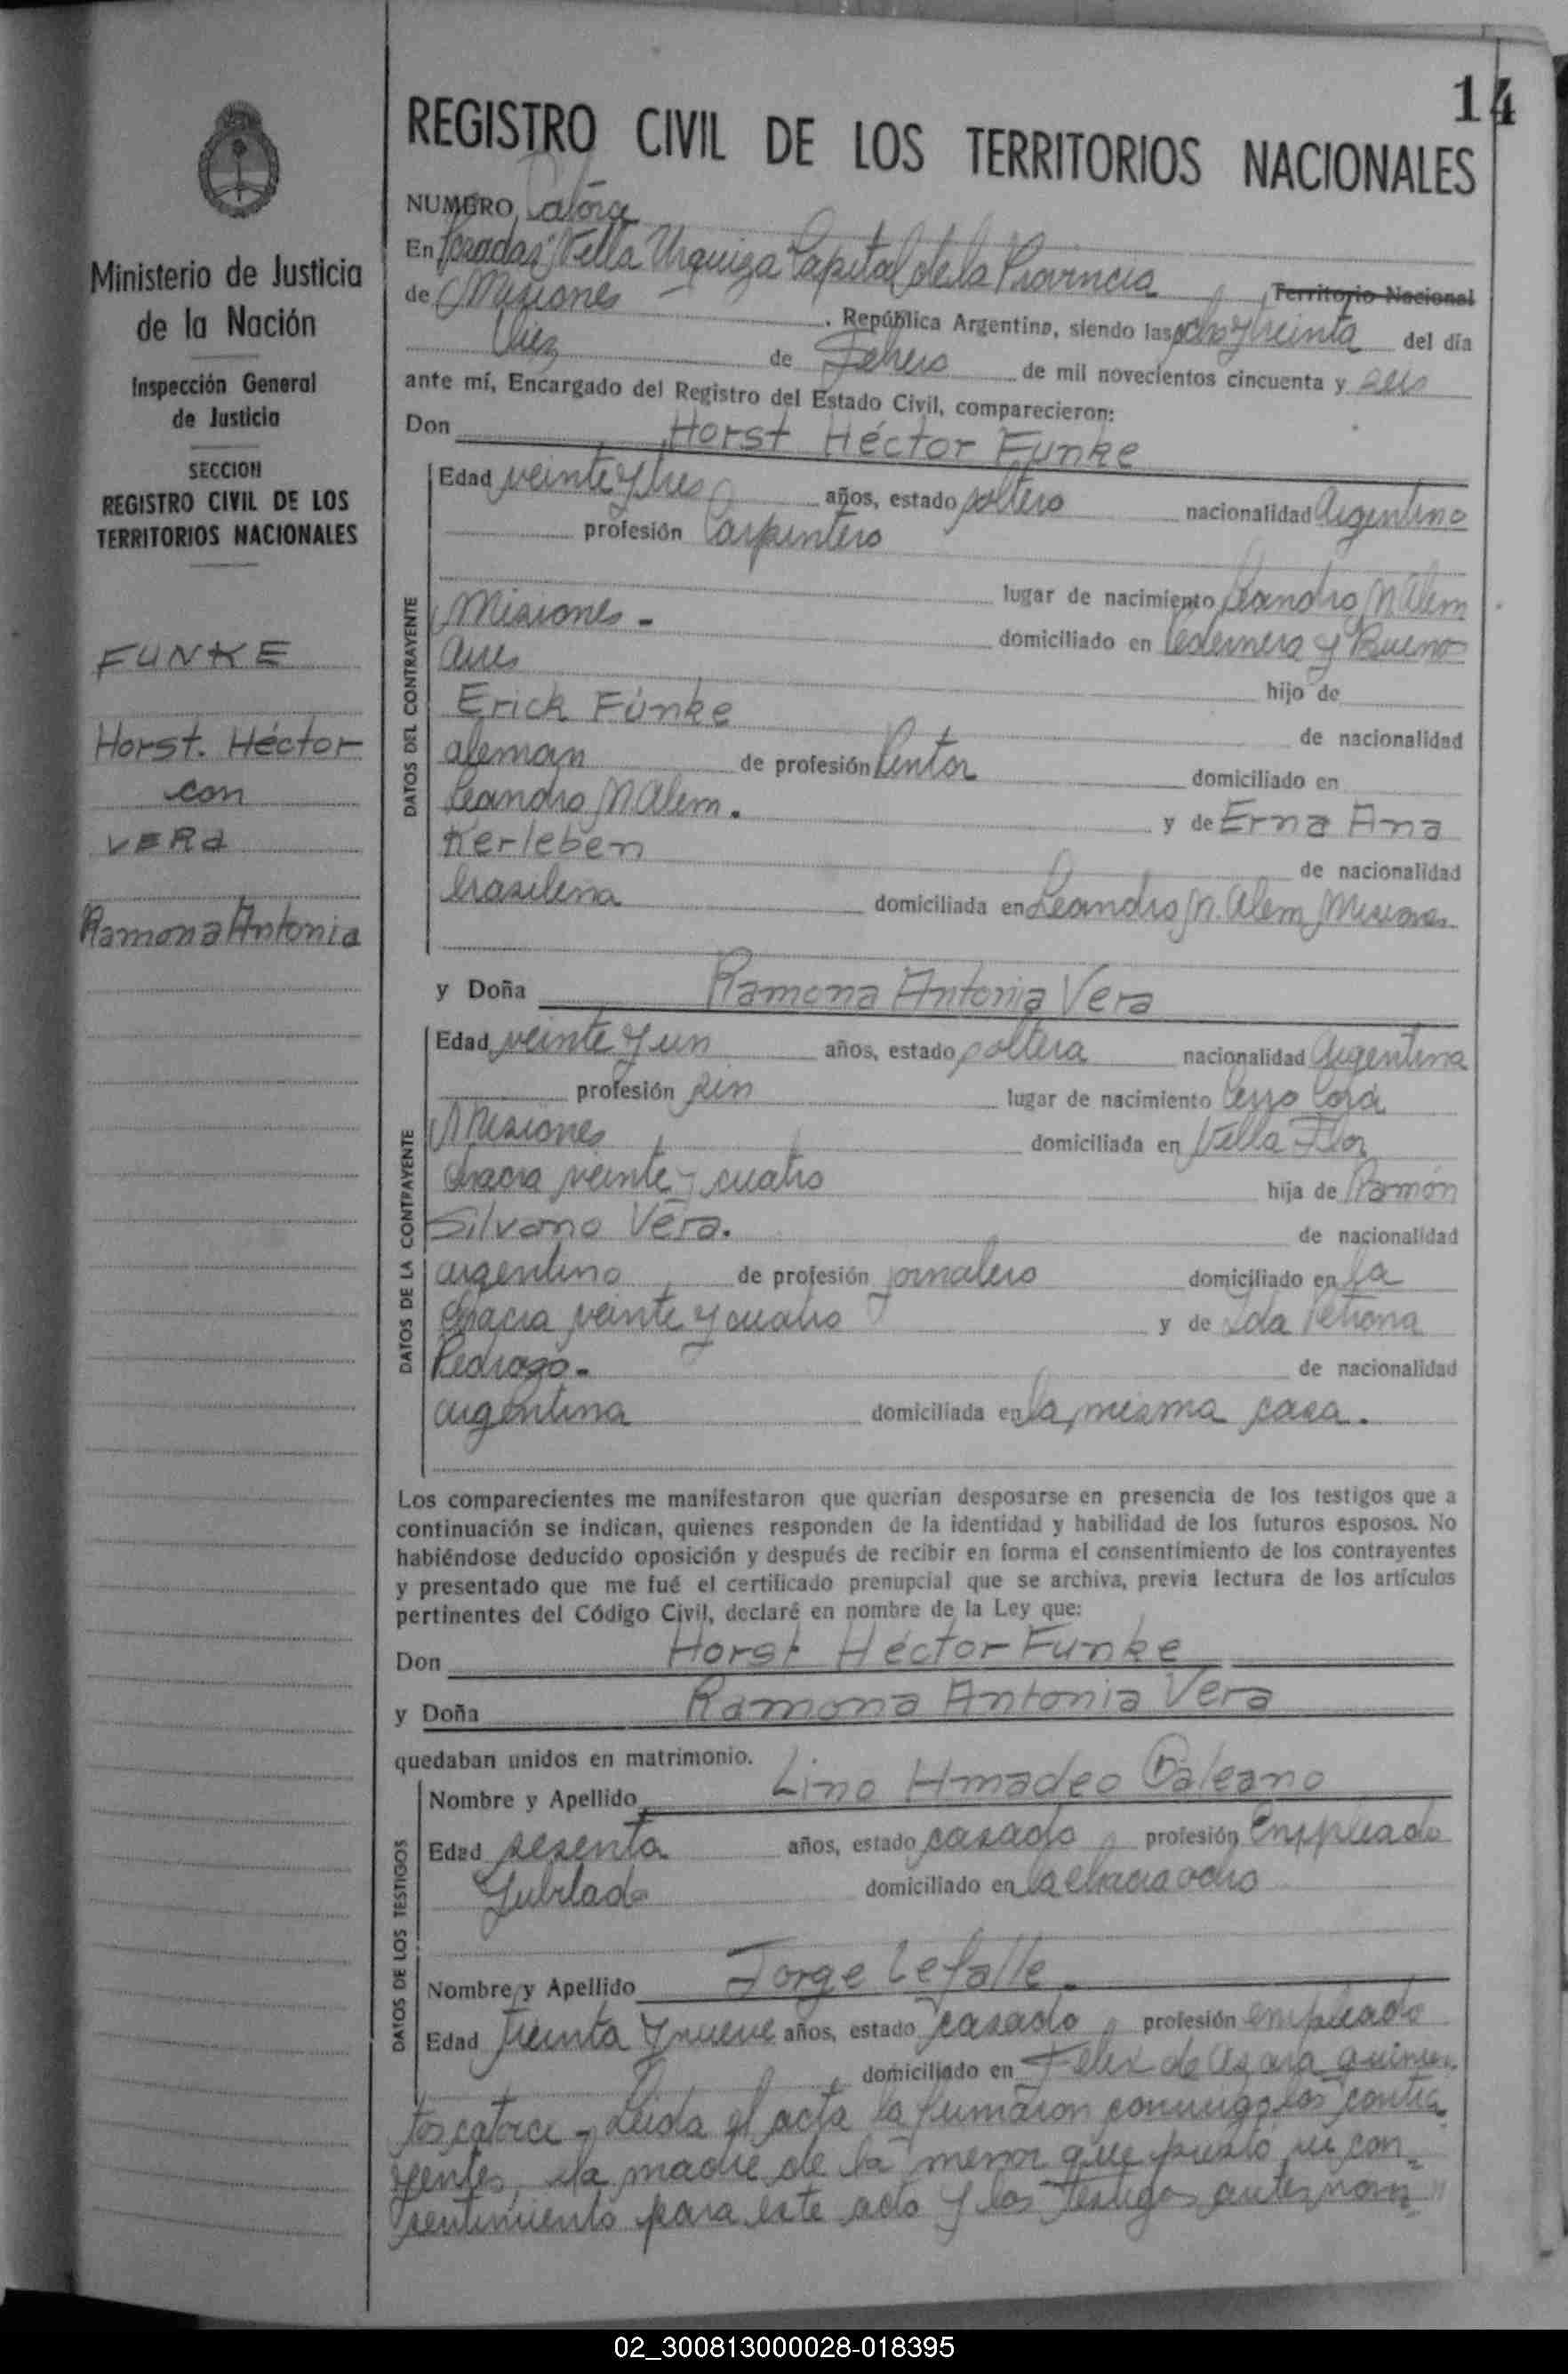 14
REGISTRO CIVIL DE LOS TERRITORIOS NACIONALES
Ministerio de Justicia
de la Nación
Inspección General
de Justicia
SECCION
REGISTRO CIVIL DE LOS
TERRITORIOS NACIONALES
FUNKE
Horst. Héctor
con
VERA
Ramona Antonia
NUMERO Catorce
En Posadas Villa Urquiza Capital de la Provincia Territorio Nacional
de Misiones República Argentina, siendo las ocho y treinta del día
Diez de Febrero de mil novecientos cincuenta y seis
ante mí, Encargado del Registro del Estado Civil, comparecieron:
Don Horst Héctor Funke
DATOS DEL CONTRAYENTE
Edad veinte y tres años, estado soltero nacionalidad Argentino
profesión Carpintero
lugar de nacimiento Leandro N Alem
Misiones.- domiciliado en Pedernera y Bueno
Aires hijo de
Erick Fúnke de nacionalidad
aleman de profesión Pintor domiciliado en
Leandro N Alem. y de Erna Ana
Kerleben de nacionalidad
brasilena domiciliada en Leandro N. Alem Misiones
y Doña Ramona Antonia Vera
DATOS DE LA CONTRAYENTE
Edad veinte y un años, estado soltera nacionalidad Argentina
profesión sin lugar de nacimiento Cerro Corá
Misiones domiciliada en Villa Flor
chacra veinte y cuatro hija de Ramón
Silvano Vera. de nacionalidad
argentino de profesión jornalero domiciliado en la
chacra veinte y cuatro y de Ida Petrona
Pedrozo.- de nacionalidad
argentina domiciliada en la misma casa.
Los comparecientes me manifestaron que querían desposarse en presencia de los testigos que a
continuación se indican, quienes responden de la identidad y habilidad de los futuros esposos. No
habiéndose deducido oposición y después de recibir en forma el consentimiento de los contrayentes
y presentado que me fué el certificado prenupcial que se archiva, previa lectura de los artículos
pertinentes del Código Civil, declaré en nombre de la Ley que:
Don Horst Héctor Funke
y Doña Ramona Antonia Vera
quedaban unidos en matrimonio.
DATOS DE LOS TESTIGOS
Nombre y Apellido Lino Amadeo Galeano
Edad sesenta años, estado casado profesión Empleado
Jubilado domiciliado en la chacra ocho
Nombre y Apellido Jorge Lefalle.
Edad treinta y nueve años, estado casado profesión empleado
domiciliado en Felix de Azara quinien
tos catorce - Leida el acta la firmaron conmigo los contra
yentes, la madre de la menor que prestó su con
sentimiento para este acto y los testigos antes nom
02_300813000028-018395